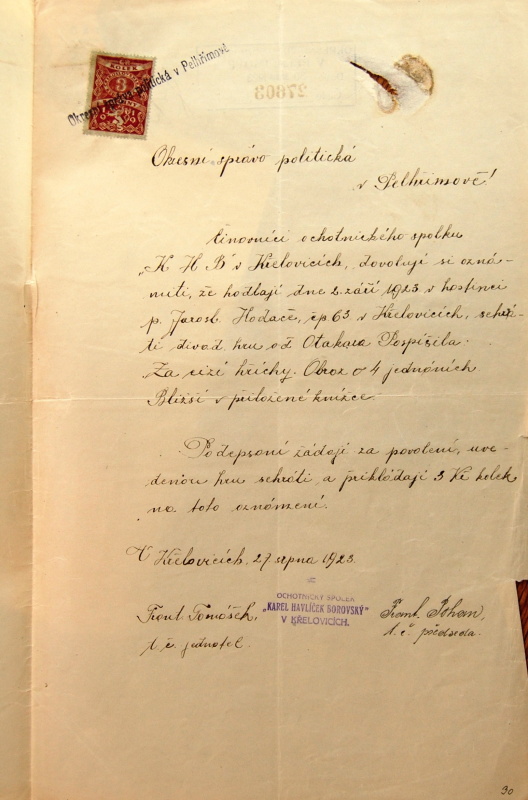 KOLEK
3
Okresní správa politická v Pelhřimově
27803
Okresní správo politická
v Pelhřimově!
činovníci ochotnického spolku
„K H B" v Křelovicích, dovolují si ozná-
miti, že hodlají dne 2. září 1923 v hostinci
p. Jarosl. Hodače, čp 63 v Křelovicích, sehrá-
ti divad. hru od Otakara Pospíšila.
Za cizí hříchy. Obraz o 4 jednáních.
Bližší v přiložené knížce.
Podepsaní žádají za povolení, uve-
denou hru sehráti, a přikládají 3 Kč kolek
na toto oznámení.
V Křelovicích, 27 srpna 1923.
OCHOTNICKÝ SPOLEK
„KAREL HAVLÍČEK BOROVSKÝ"
V KŘELOVICÍCH.
Frant. Tomášek,
t. č. jednatel.
Frant. Johan,
t. č. předseda.
30